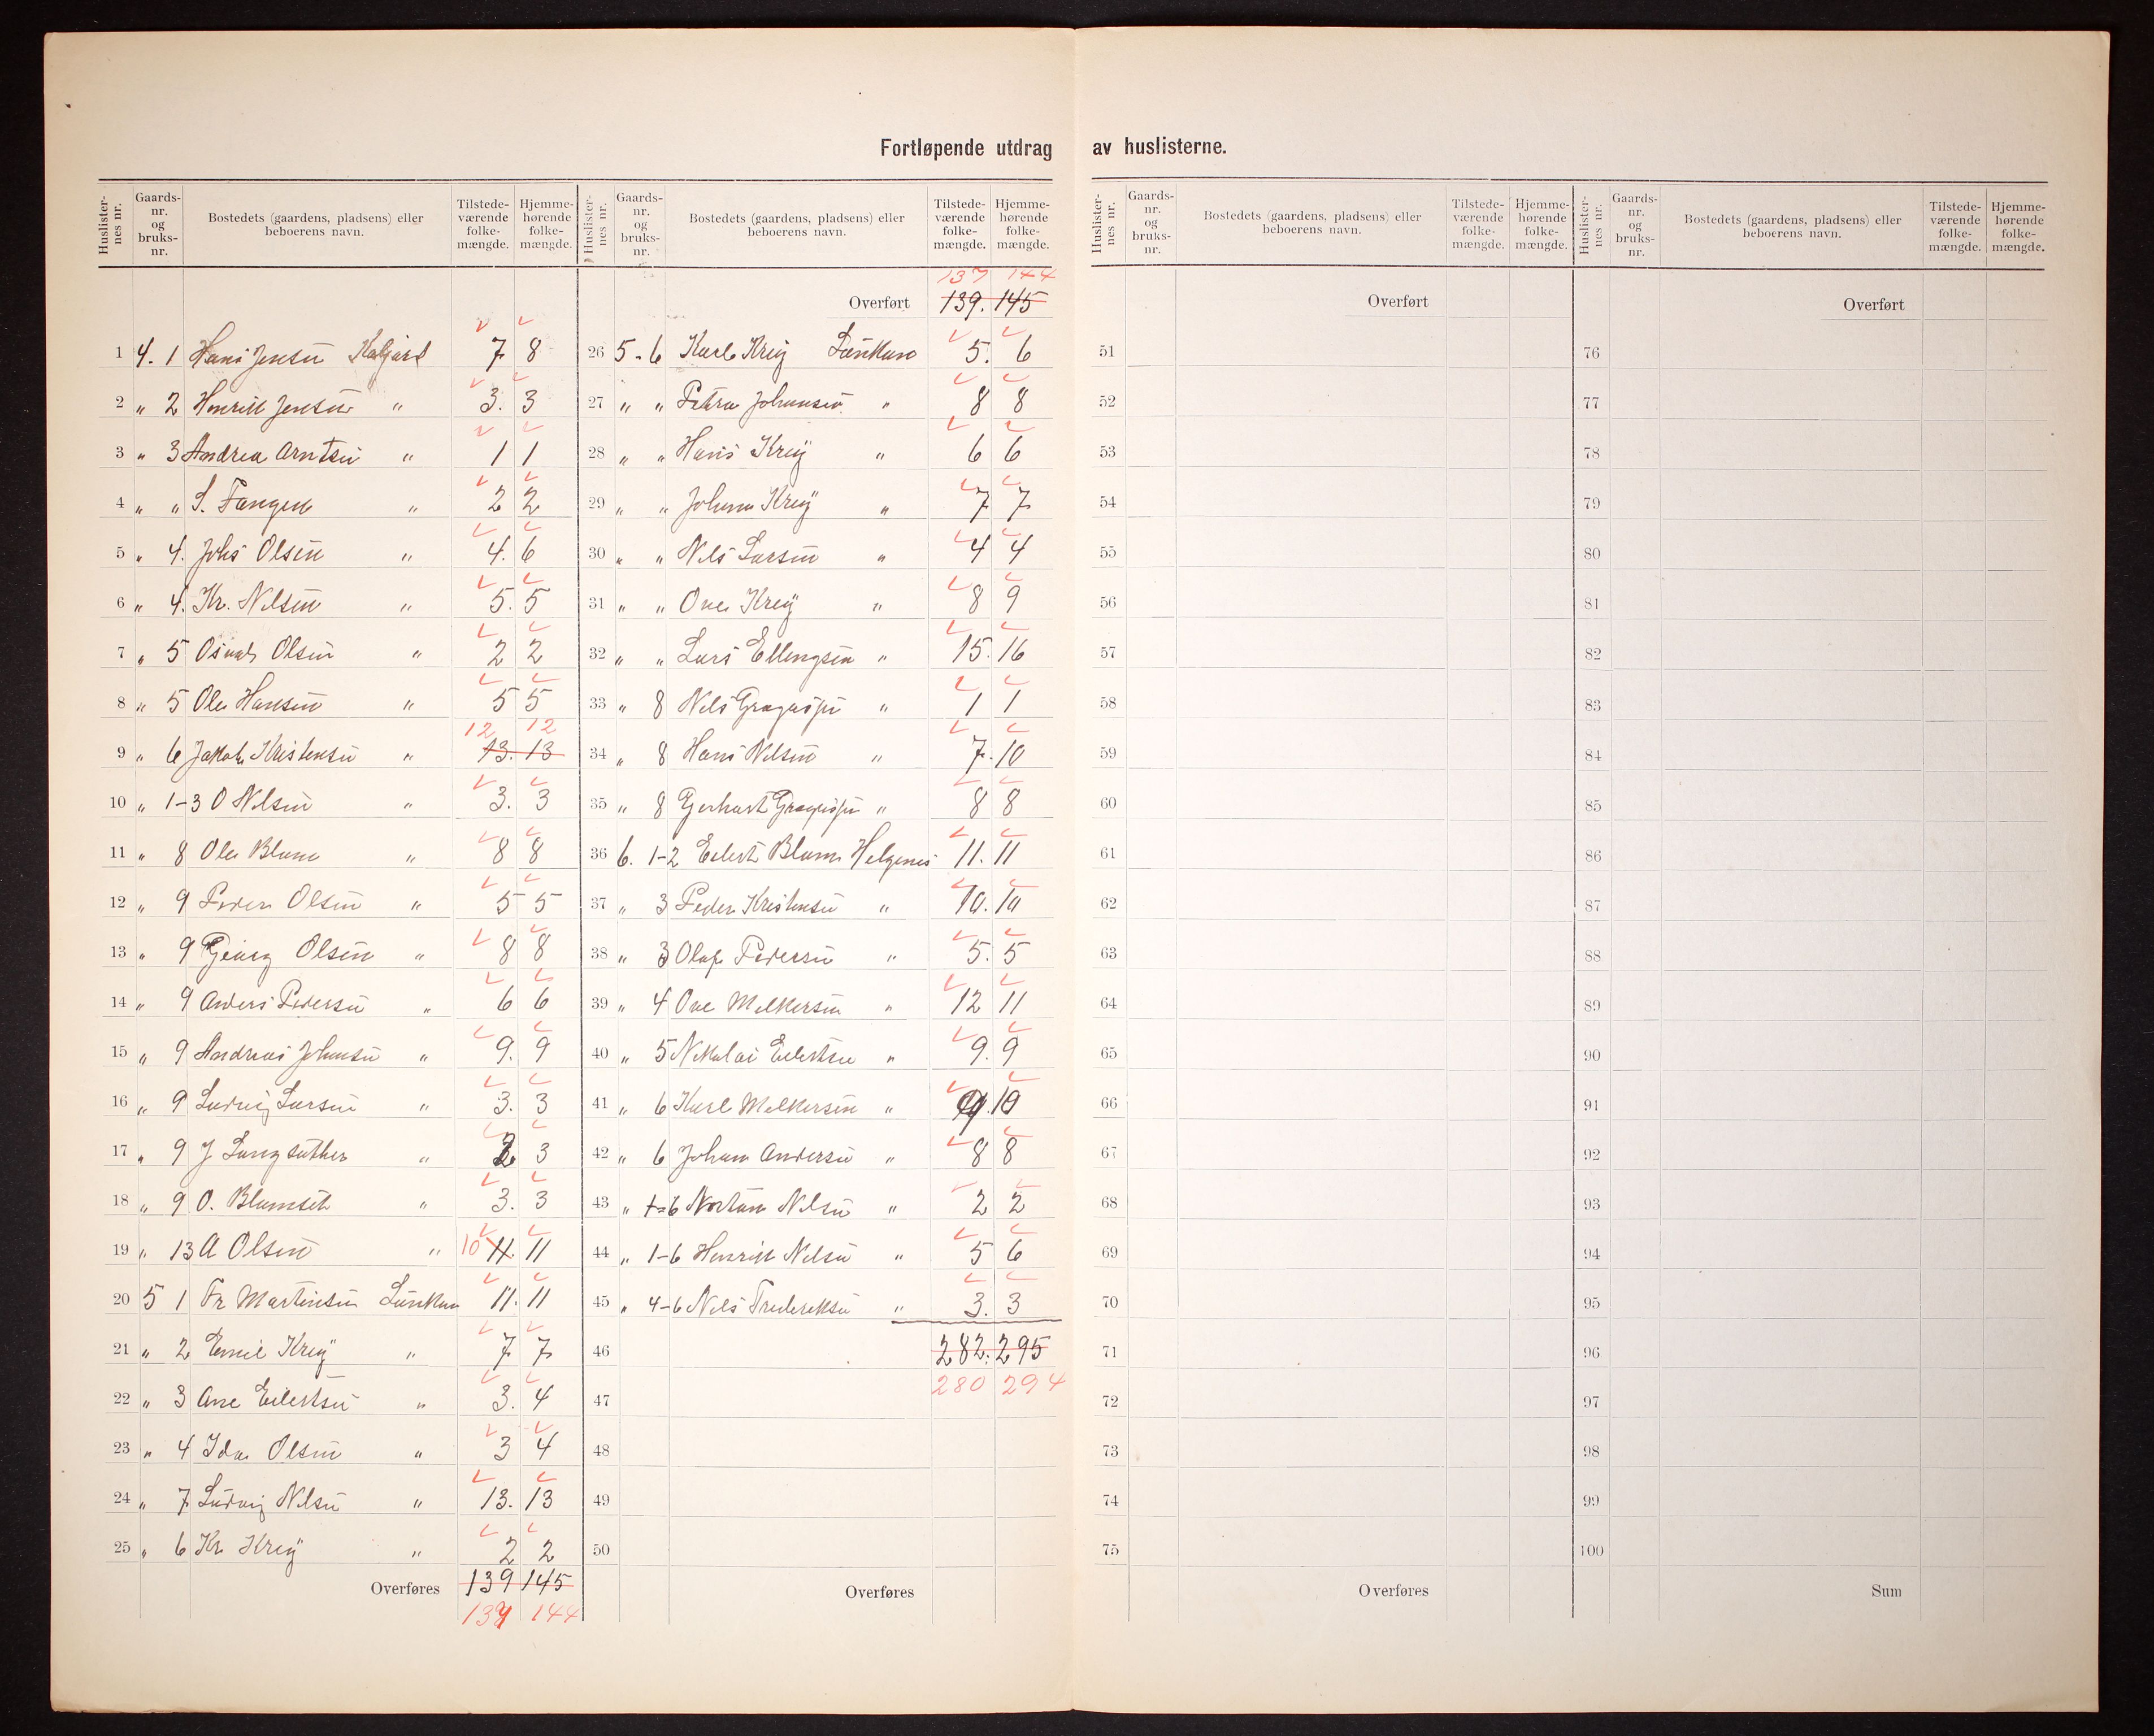 Fortløpende utdrag av huslisterne.
Huslister-nes nr. Gaards-nr. og bruks-nr. Bostedets (gaardens, pladsens) eller beboerens navn. Tilstede-værende folke-mængde. Hjemme-hørende folke-mængde.
Huslister-nes nr. Gaards-nr. og bruks-nr. Bostedets (gaardens, pladsens) eller beboerens navn. Tilstede-værende folke-mængde. Hjemme-hørende folke-mængde.
Huslister-nes nr. Gaards-nr. og bruks-nr. Bostedets (gaardens, pladsens) eller beboerens navn. Tilstede-værende folke-mængde. Hjemme-hørende folke-mængde.
Huslister-nes nr. Gaards-nr. og bruks-nr. Bostedets (gaardens, pladsens) eller beboerens navn. Tilstede-værende folke-mængde. Hjemme-hørende folke-mængde.
1 4. 1 Hans Jensen 7 8
2 " 2 Henrik Jensen " 3. 3
3 " 3 Andrea Arntsen " 1 1
4 " " S. Fangen " 2 2
5 " 4. Johs Olsen " 4. 6
6 " 4. Kr. Nilsen " 5. 5
7 " 5 Osvald Olsen " 2 2
8 " 5 Ole Hansen " 5 5
12 12
9 " 6 Jakob Kristensen " 13. 13
10 " 1-3 O Nilsen " 3. 3
11 " 8 Ole Blum " 8 8
12 " 9 Peder Olsen " 5 5
13 " 9 Georg Olsen " 8 8
14 " 9 Anders Pedersen " 6 6
15 " 9 Andreas Johansen " 9. 9
16 " 9 Ludvig Larsen " 3. 3
17 " 9 J Langsæther " 3
18 " 9 O. Blumseth " 3. 3
19 " 13 A Olsen " 10 11. 11
20 5 1 Fr Martinsen Lunkan 11. 11
21 " 2 Emil Krey " 7 7
22 " 3 Ane Eilertsen " 3. 4
23 " 4 Ida Olsen " 3 4
24 " 7 Ludvig Nilsen " 13. 13
25 " 6 Kr Krey " 2 2
Overføres 139 145
137 144
137 144
Overført 139. 145
26 5. 6 Karl Krey Lunkan 5. 6
27 " " Petra Johansen " 8 8
28 " " Hans Krey " 6 6
29 " " Johan Krey " 7 7
30 " " Nils Larsen " 4 4
31 " " Ove Krey " 8 9
32 " " Lars Ellengsen " 15. 16
33 " 8 Nils " 1 1
34 " 8 Hans Nilsen " 7. 10
35 " 8 Gerhart " 8 8
36 6. 1-2 Eilert Blum Helgenes 11. 11
37 " 3 Peder Kristensen " 10. 10
38 " 3 Olaf Pedersen " 5. 5
39 " 4 Ove Melkersen " 12 11
40 " 5 Nikolai Eilertsen " 9. 9
41 " 6 Karl Melkersen " 10
42 " 6 Johan Andersen " 8 8
43 " 1-6 Nortun Nilsen " 2 2
44 " 1-6 Henrik Nilsen " 5 6
45 " 4-6 Nils Frederiksen " 3. 3
46 282. 295
280 294
47
48
49
50
Overføres
Overført
51
52
53
54
55
56
57
58
59
60
61
62
63
64
65
66
67
68
69
70
71
72
73
74
75
Overføres
Overført
76
77
78
79
80
81
82
83
84
85
86
87
88
89
90
91
92
93
94
95
96
97
98
99
100
Sum